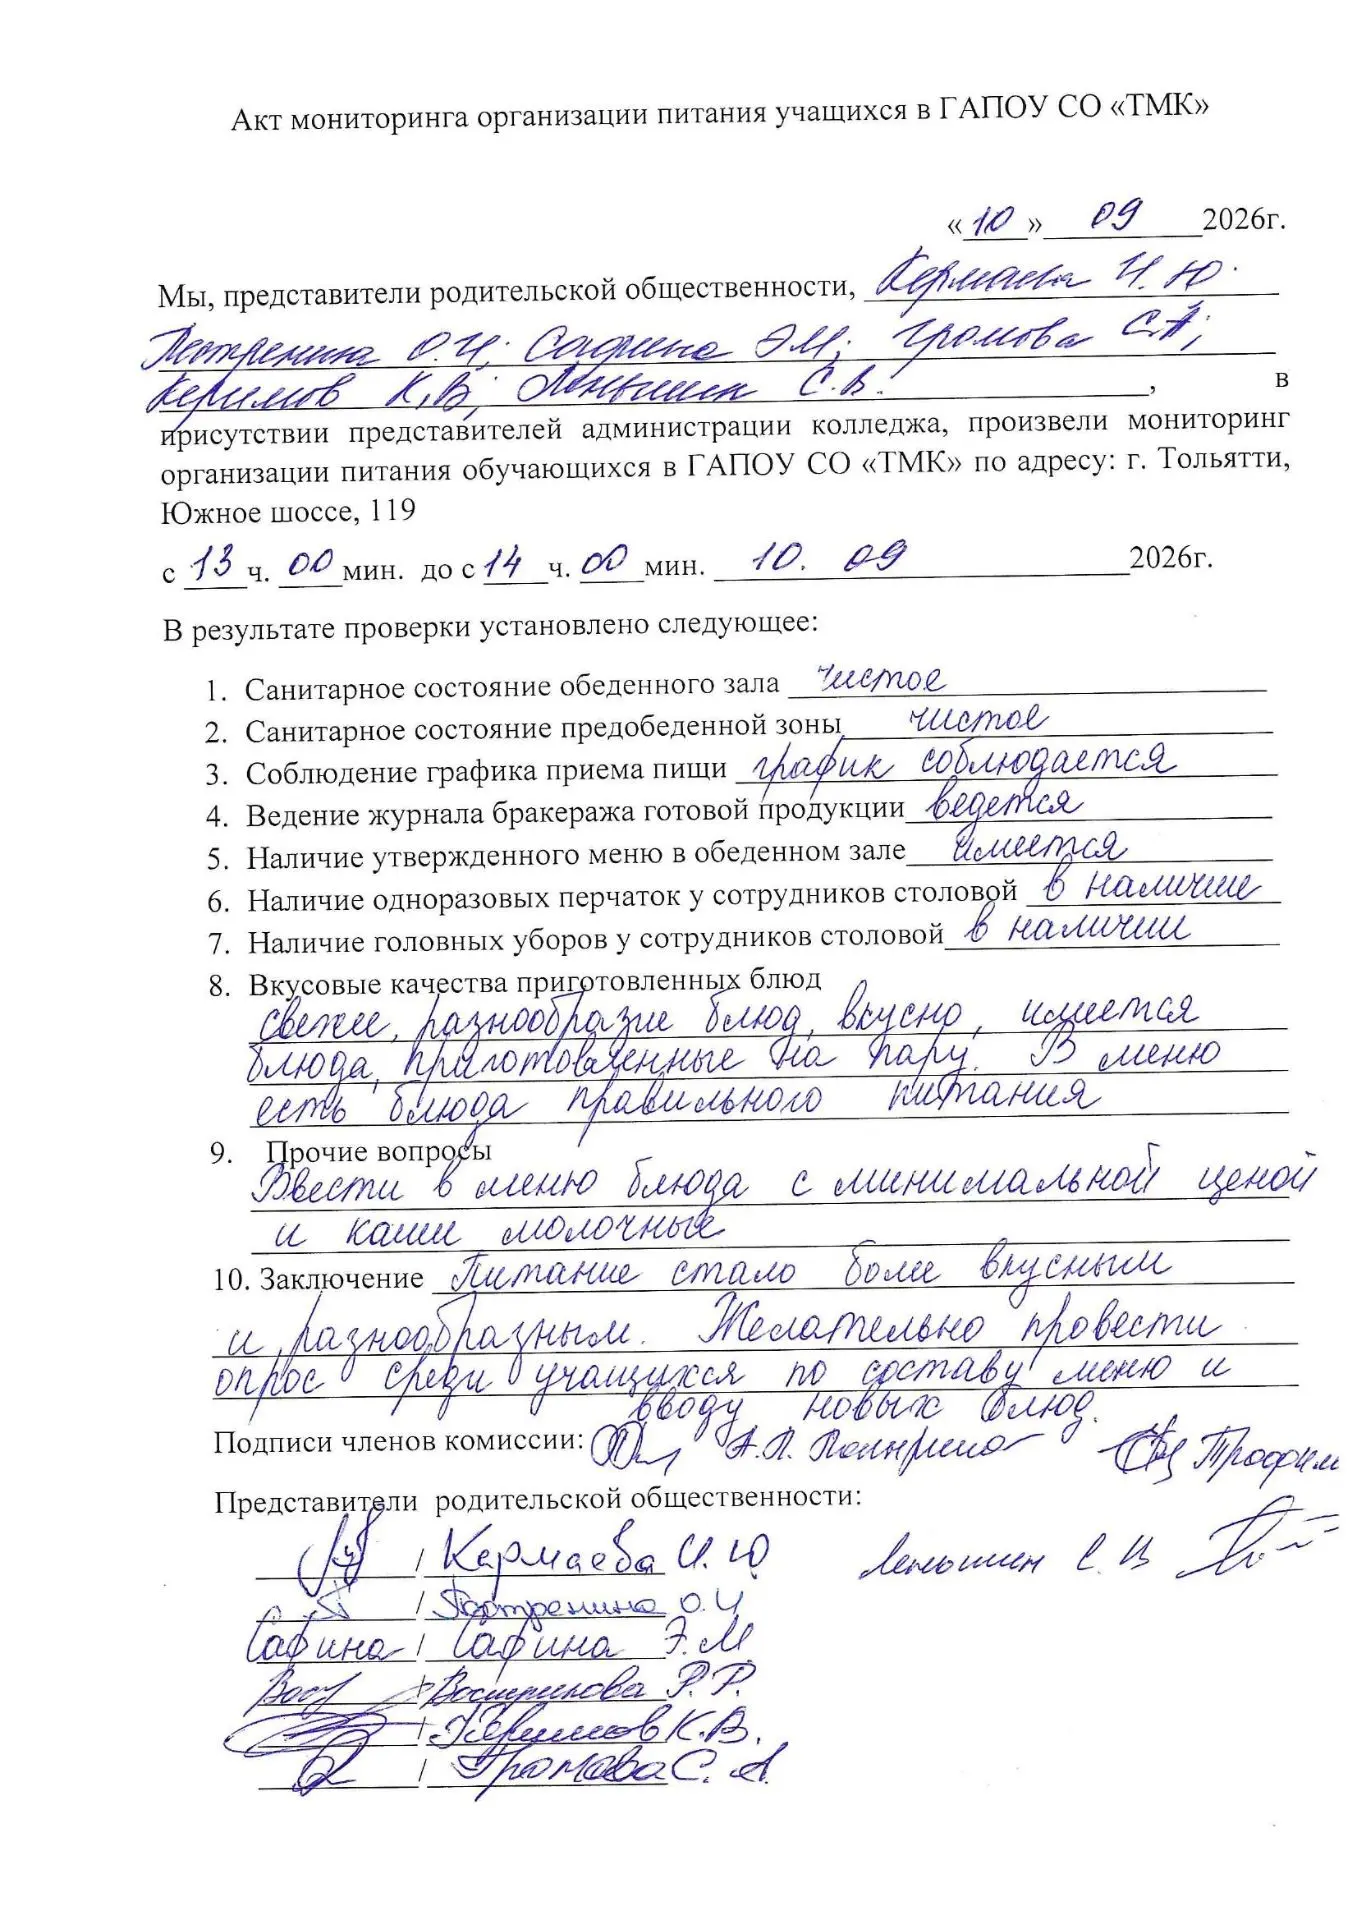 Акт мониторинга организации питания учащихся в ГАПОУ СО «ТМК»
«10» 09 2026г.
Мы, представители родительской общественности, Кермаева И. Ю.
Пастренина О.И; Сафина Э.М; Громова С.А;
Керимов К.В; Меньшин С.В. , в
присутствии представителей администрации колледжа, произвели мониторинг
организации питания обучающихся в ГАПОУ СО «ТМК» по адресу: г. Тольятти,
Южное шоссе, 119
с 13 ч. 00 мин. до с 14 ч. 00 мин. 10. 09 2026г.
В результате проверки установлено следующее:
1. Санитарное состояние обеденного зала чистое
2. Санитарное состояние предобеденной зоны чистое
3. Соблюдение графика приема пищи график соблюдается
4. Ведение журнала бракеража готовой продукции ведется
5. Наличие утвержденного меню в обеденном зале имеется
6. Наличие одноразовых перчаток у сотрудников столовой в наличие
7. Наличие головных уборов у сотрудников столовой в наличии
8. Вкусовые качества приготовленных блюд
свежее, разнообразие блюд, вкусно, имеется
блюда, приготовленные на пару. В меню
есть блюда правильного питания
9. Прочие вопросы
Ввести в меню блюда с минимальной ценой
и каши молочные
10. Заключение Питание стало боле вкусным
и разнообразным. Желательно провести
опрос среди учащихся по составу меню и
вводу новых блюд.
Подписи членов комиссии: А.П. Трофим
Представители родительской общественности:
/ Кермаева И. Ю С. В
/ О.И
Сафина / Сафина Э.М.
/ Вострикова Р.Р.
/ Керимов К.В.
/ Громова С. А.